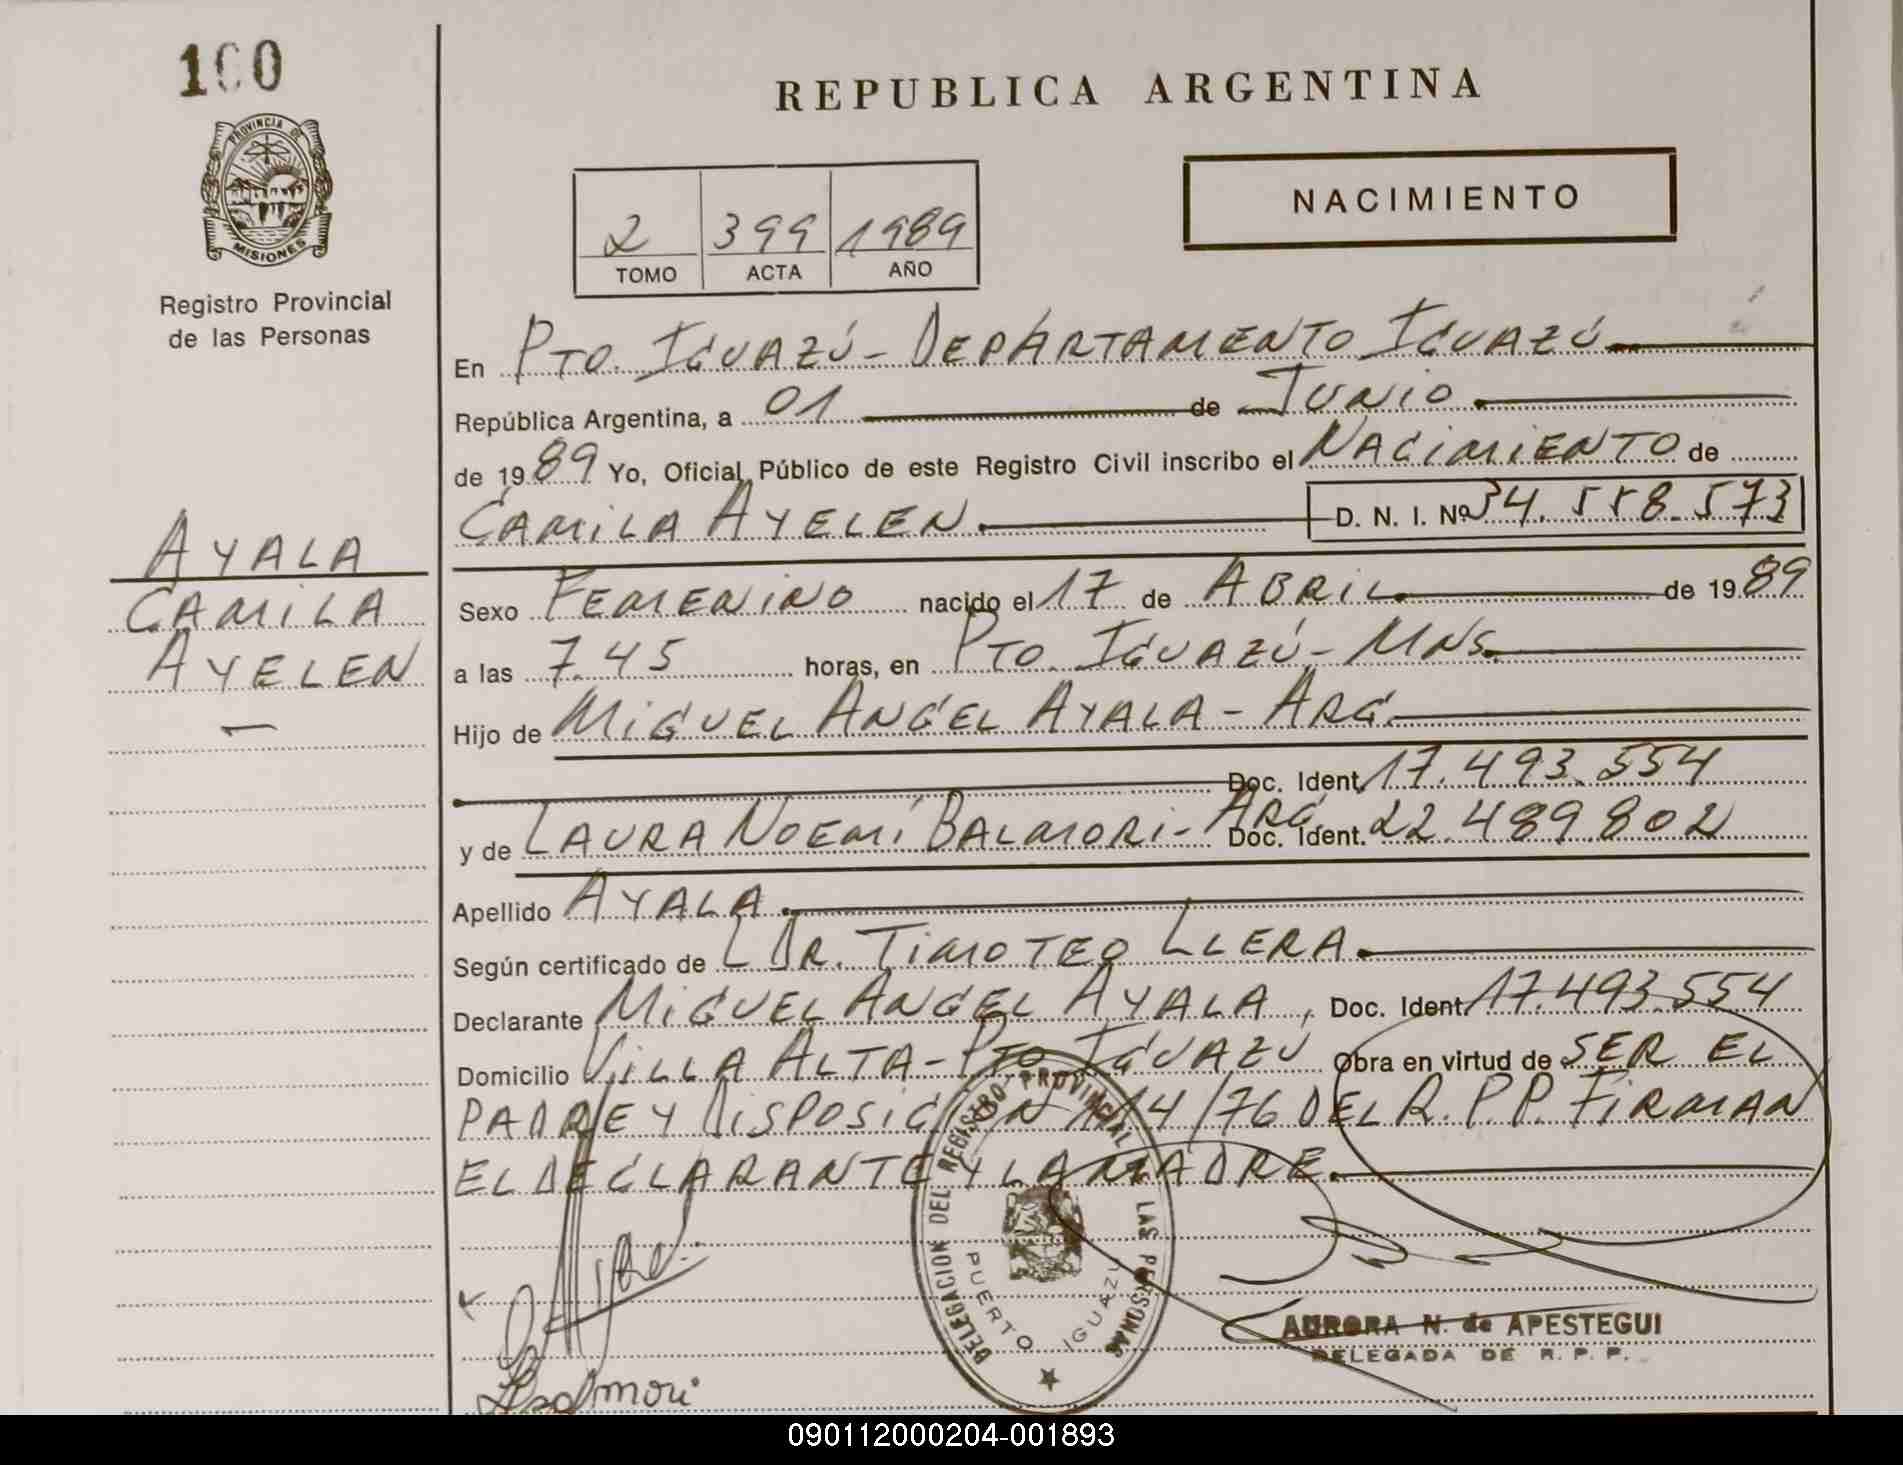 100
PROVINCIA DE
MISIONES
Registro Provincial
de las Personas
AYALA
CAMILA
AYELEN
REPUBLICA ARGENTINA
NACIMIENTO
2 399 1989
TOMO ACTA AÑO
En PTO. IGUAZÚ - DEPARTAMENTO IGUAZÚ
República Argentina, a 01 de JUNIO
de 1989 Yo, Oficial Público de este Registro Civil inscribo el NACIMIENTO de
CAMILA AYELEN D. N. I. Nº 34.558.573
Sexo FEMENINO nacido el 17 de ABRIL de 1989
a las 7.45 horas, en PTO. IGUAZÚ - MNS.
Hijo de MIGUEL ANGEL AYALA - ARG.
Doc. Ident. 17.493.554
y de LAURA NOEMÍ BALMORI - ARG. Doc. Ident. 22.489.802
Apellido AYALA
Según certificado de DR. TIMOTEO LLERA
Declarante MIGUEL ANGEL AYALA, Doc. Ident. 17.493.554
Domicilio VILLA ALTA - PTO IGUAZÚ Obra en virtud de SER EL
PADRE Y DISPOSICION 114/76 DEL R.P.P. FIRMAN
EL DECLARANTE Y LA MADRE.
DELEGACION DEL REGISTRO PROVINCIAL DE LAS PERSONAS
PUERTO IGUAZU
AURORA N. de APESTEGUI
DELEGADA DE R. P. P.
Balmori
090112000204-001893